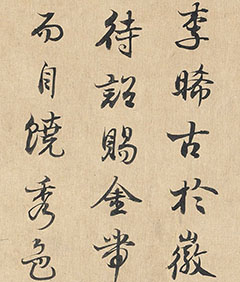 李晞古於徽
待詔賜金帶
而自饒秀色